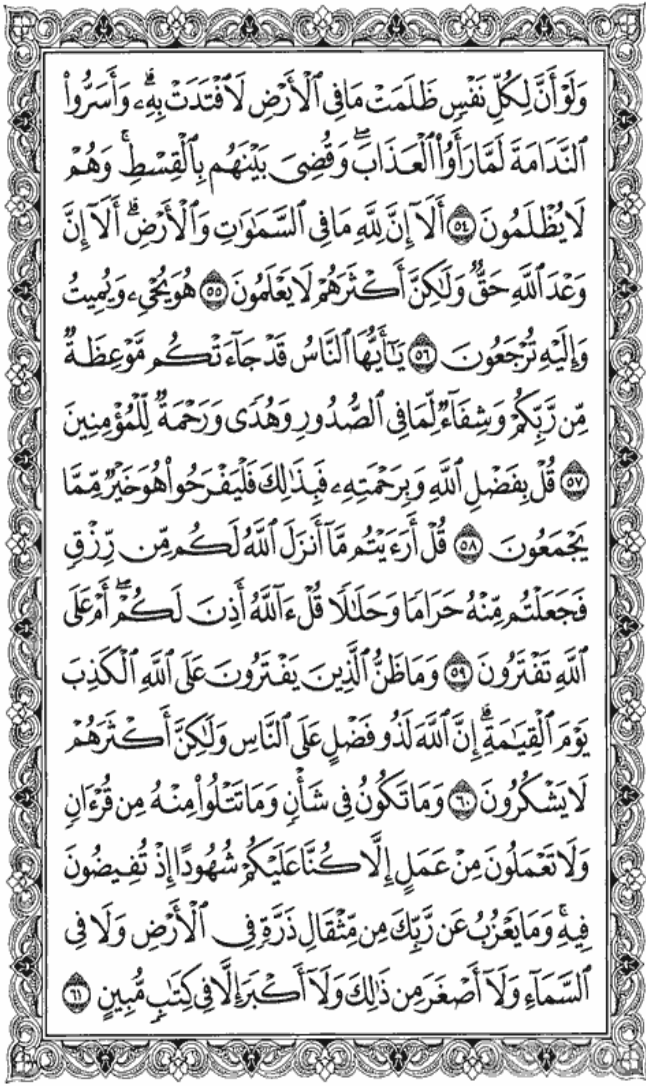 وَلَوْ أَنَّ لِكُلِّ نَفْسٍ ظَلَمَتْ مَا فِي ٱلْأَرْضِ لَٱفْتَدَتْ بِهِۦۗ وَأَسَرُّوا۟
ٱلنَّدَامَةَ لَمَّا رَأَوُا۟ ٱلْعَذَابَۖ وَقُضِيَ بَيْنَهُم بِٱلْقِسْطِۚ وَهُمْ
لَا يُظْلَمُونَ ٥٤ أَلَآ إِنَّ لِلَّهِ مَا فِي ٱلسَّمَٰوَٰتِ وَٱلْأَرْضِۗ أَلَآ إِنَّ
وَعْدَ ٱللَّهِ حَقٌّۭ وَلَٰكِنَّ أَكْثَرَهُمْ لَا يَعْلَمُونَ ٥٥ هُوَ يُحْيِۦ وَيُمِيتُ
وَإِلَيْهِ تُرْجَعُونَ ٥٦ يَٰٓأَيُّهَا ٱلنَّاسُ قَدْ جَآءَتْكُم مَّوْعِظَةٌۭ
مِّن رَّبِّكُمْ وَشِفَآءٌۭ لِّمَا فِي ٱلصُّدُورِ وَهُدًۭى وَرَحْمَةٌۭ لِّلْمُؤْمِنِينَ
٥٧ قُلْ بِفَضْلِ ٱللَّهِ وَبِرَحْمَتِهِۦ فَبِذَٰلِكَ فَلْيَفْرَحُوا۟ هُوَ خَيْرٌۭ مِّمَّا
يَجْمَعُونَ ٥٨ قُلْ أَرَءَيْتُم مَّآ أَنزَلَ ٱللَّهُ لَكُم مِّن رِّزْقٍۢ
فَجَعَلْتُم مِّنْهُ حَرَامًۭا وَحَلَٰلًۭا قُلْ ءَآللَّهُ أَذِنَ لَكُمْۖ أَمْ عَلَى
ٱللَّهِ تَفْتَرُونَ ٥٩ وَمَا ظَنُّ ٱلَّذِينَ يَفْتَرُونَ عَلَى ٱللَّهِ ٱلْكَذِبَ
يَوْمَ ٱلْقِيَٰمَةِۗ إِنَّ ٱللَّهَ لَذُو فَضْلٍ عَلَى ٱلنَّاسِ وَلَٰكِنَّ أَكْثَرَهُمْ
لَا يَشْكُرُونَ ٦٠ وَمَا تَكُونُ فِي شَأْنٍۢ وَمَا تَتْلُوا۟ مِنْهُ مِن قُرْءَانٍۢ
وَلَا تَعْمَلُونَ مِنْ عَمَلٍ إِلَّا كُنَّا عَلَيْكُمْ شُهُودًا إِذْ تُفِيضُونَ
فِيهِۚ وَمَا يَعْزُبُ عَن رَّبِّكَ مِن مِّثْقَالِ ذَرَّةٍۢ فِي ٱلْأَرْضِ وَلَا فِي
ٱلسَّمَآءِ وَلَآ أَصْغَرَ مِن ذَٰلِكَ وَلَآ أَكْبَرَ إِلَّا فِي كِتَٰبٍۢ مُّبِينٍ ٦١